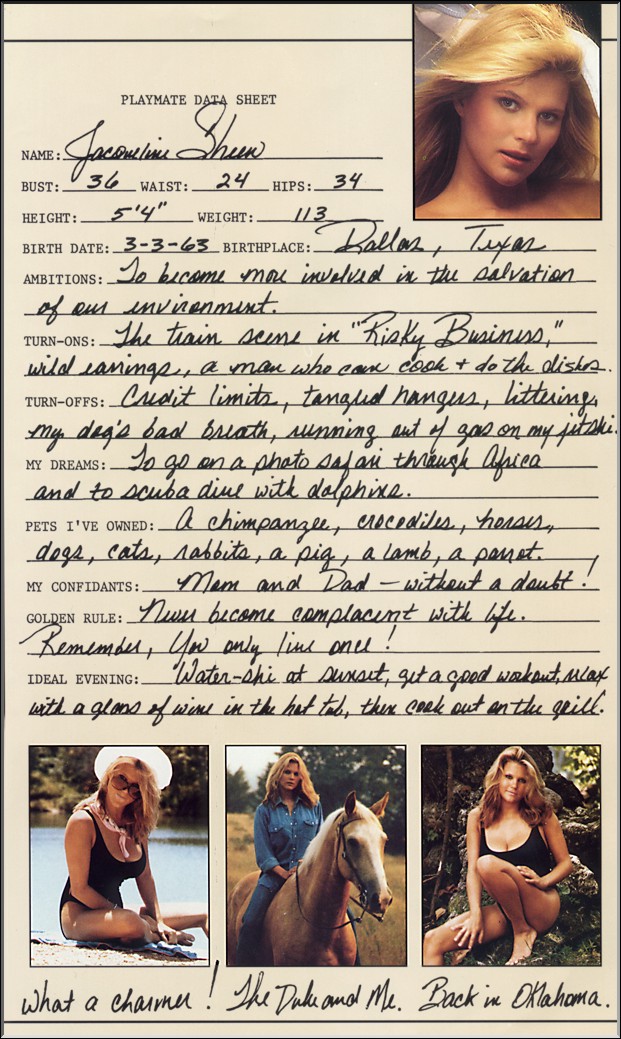 PLAYMATE DATA SHEET
NAME: Jacqueline Sheen
BUST: 36 WAIST: 24 HIPS: 34
HEIGHT: 5'4" WEIGHT: 113
BIRTH DATE: 3-3-63 BIRTHPLACE: Dallas, Texas
AMBITIONS: To become more involved in the salvation
of our environment.
TURN-ONS: The train scene in "Risky Business,"
wild earrings, a man who can cook + do the dishes.
TURN-OFFS: Credit limits, tangled hangers, littering,
my dog's bad breath, running out of gas on my jetski.
MY DREAMS: To go on a photo safari through Africa
and to scuba dive with dolphins.
PETS I'VE OWNED: A chimpanzee, crocodiles, horses,
dogs, cats, rabbits, a pig, a lamb, a parrot.
MY CONFIDANTS: Mom and Dad – without a doubt!
GOLDEN RULE: Never become complacent with life.
Remember, You only live once!
IDEAL EVENING: Water-ski at sunset, get a good workout, relax
with a glass of wine in the hot tub, then cook out on the grill.
What a charmer! The Duke and Me. Back in Oklahoma.